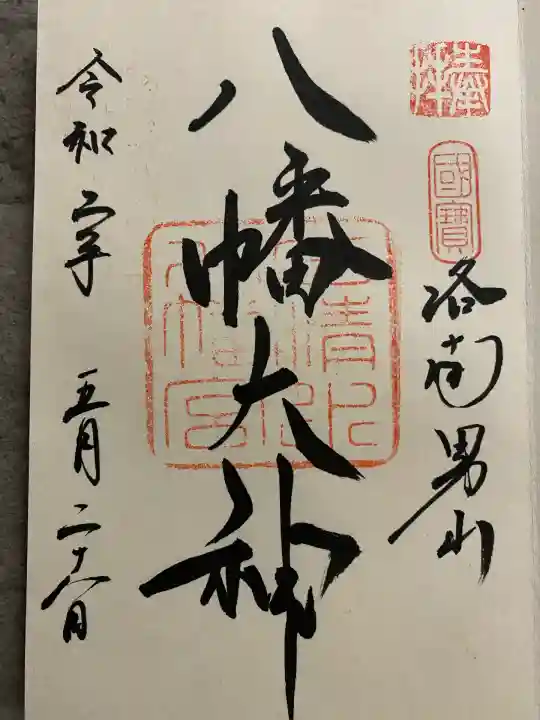 奉拝
國寶
洛南男山
八幡大神
石清水八幡宮
令和六年 五月二十八日